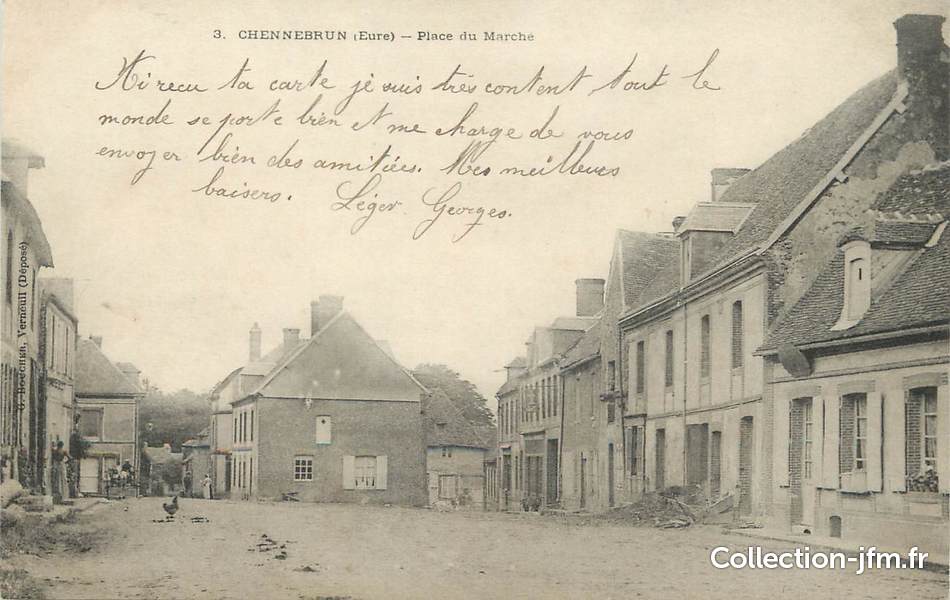 3. CHENNEBRUN (Eure) — Place du Marché
Ai reçu ta carte je suis très content, tout le
monde se porte bien et me charge de vous
envoyer bien des amitiées. Mes meilleurs
baisers. Léger Georges.
G. BOUCHER, Verneuil (Déposé)
Collection-jfm.fr